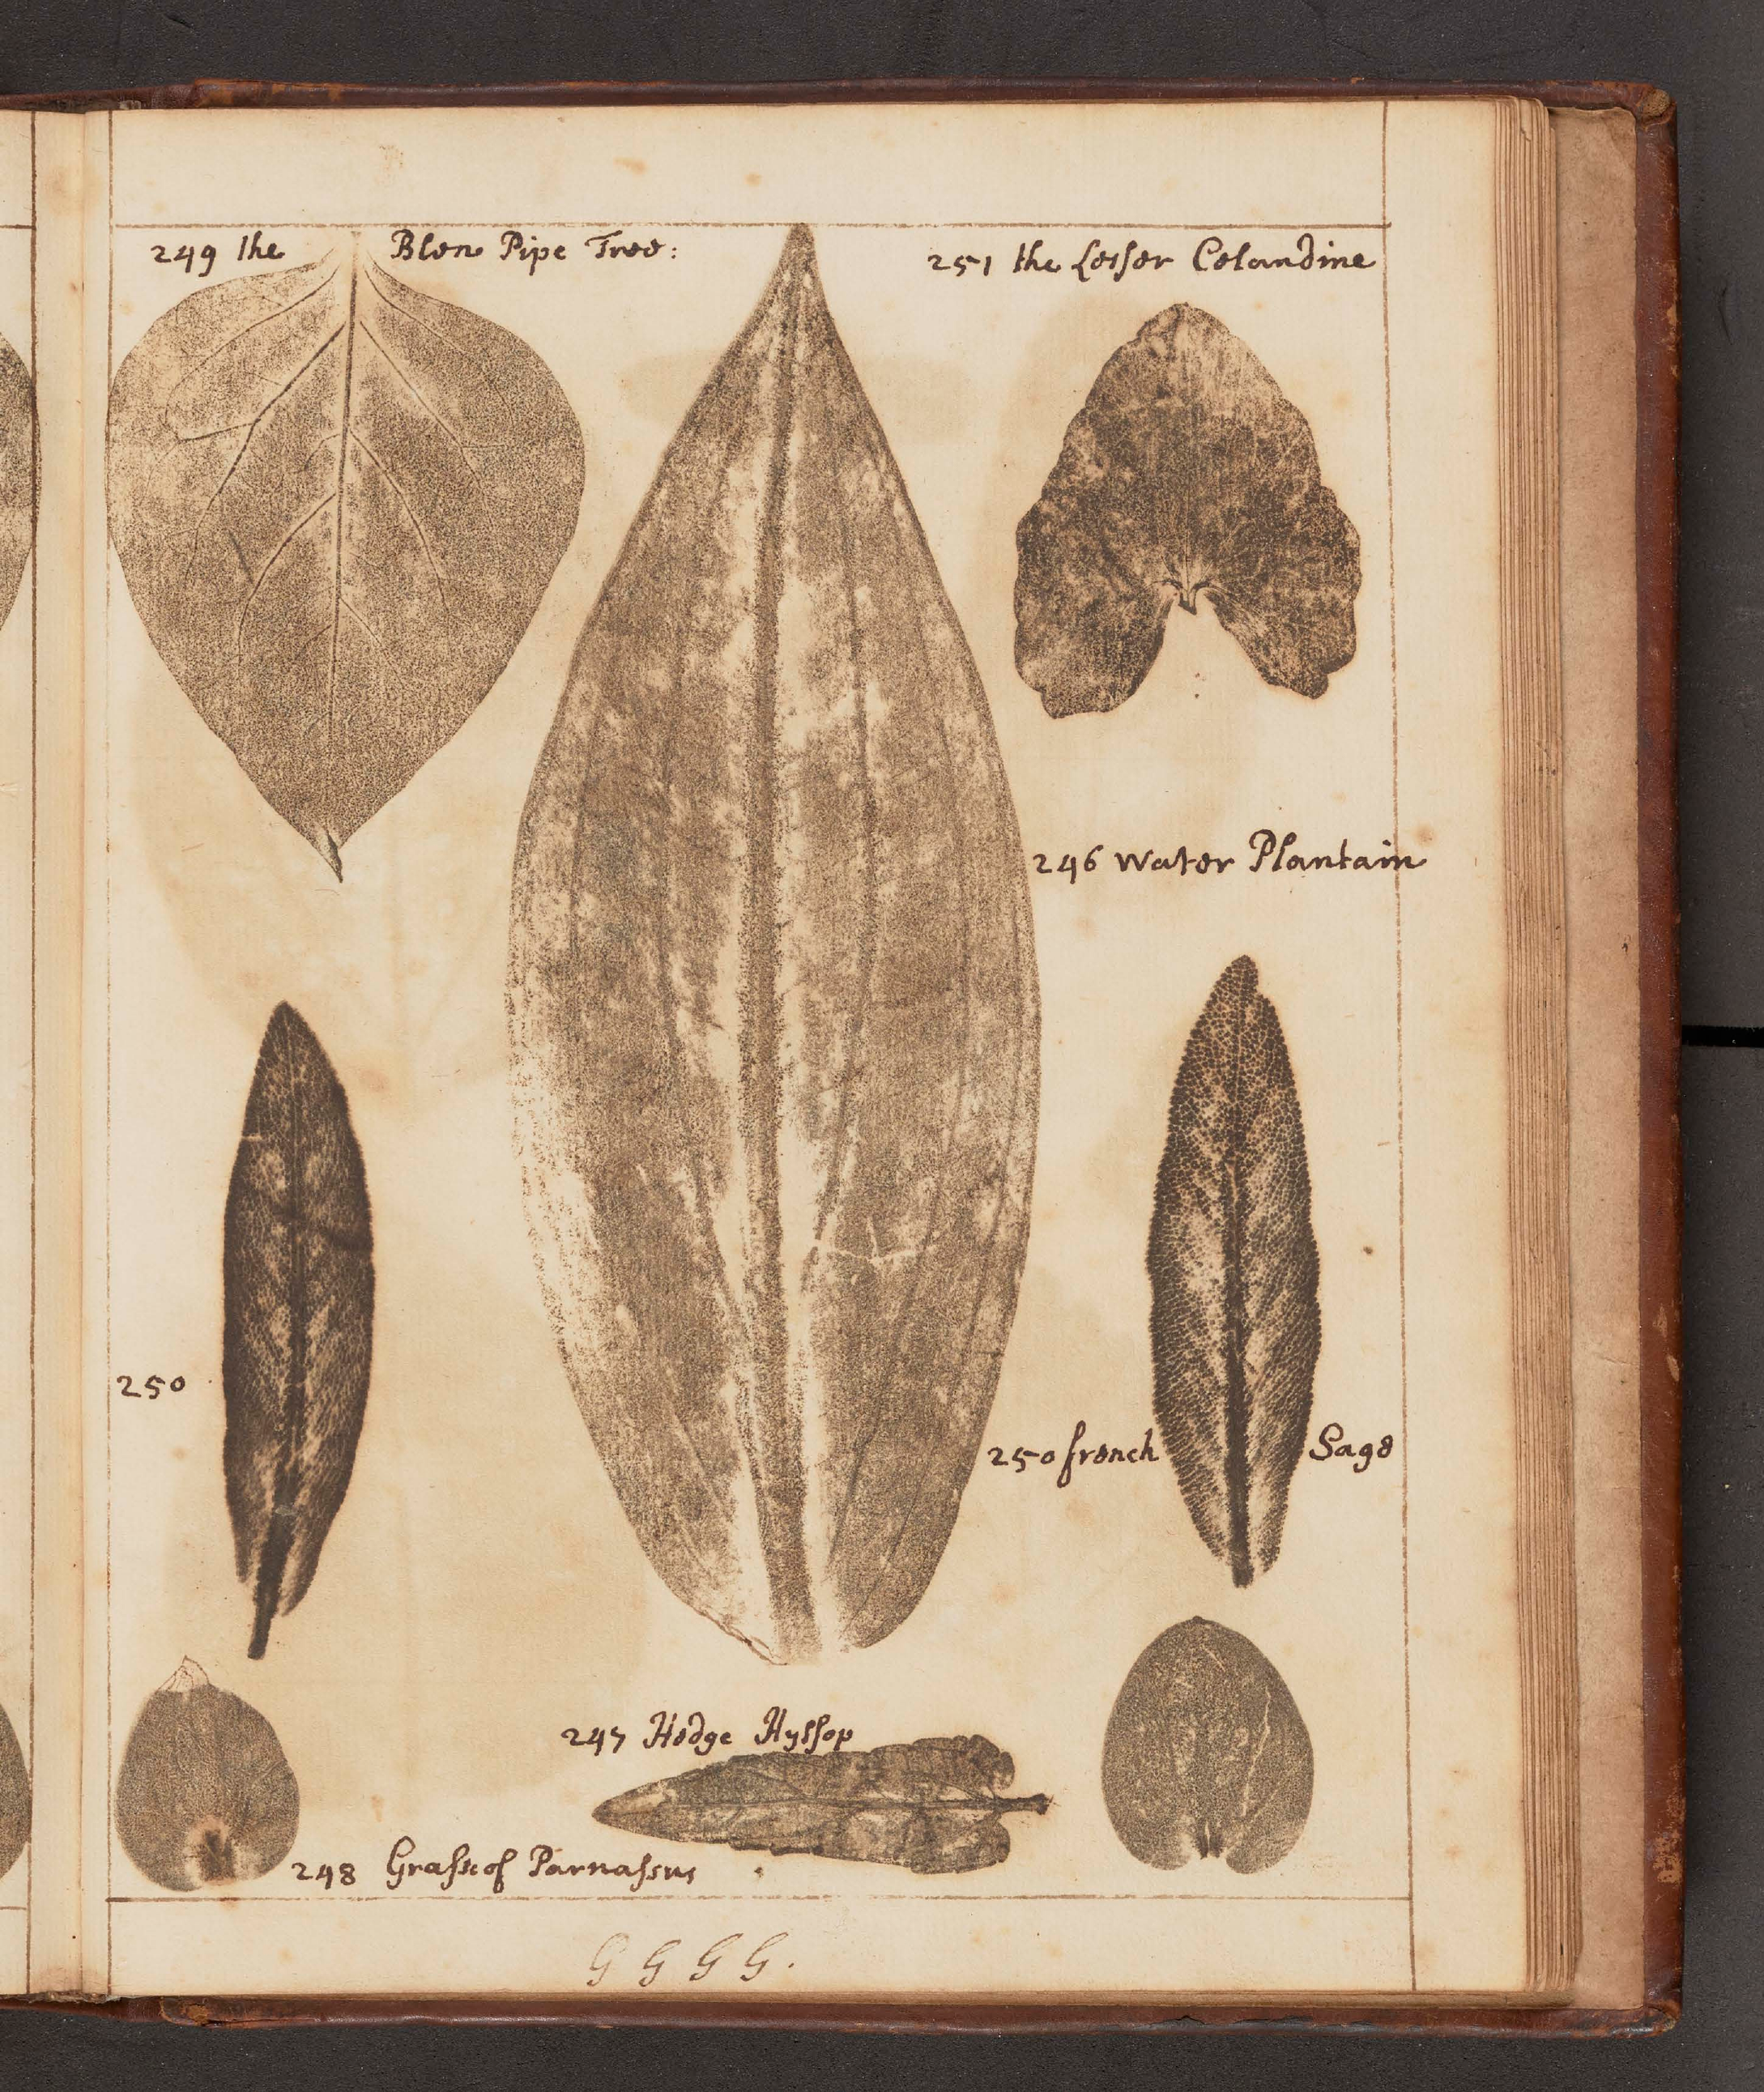 249 the Blew Pipe Tree:
251 the Lesser Celandine
246 Water Plantain
250
250 french Sage
247 Hedge Hyssop
248 Grasse of Parnassus
G G G G.